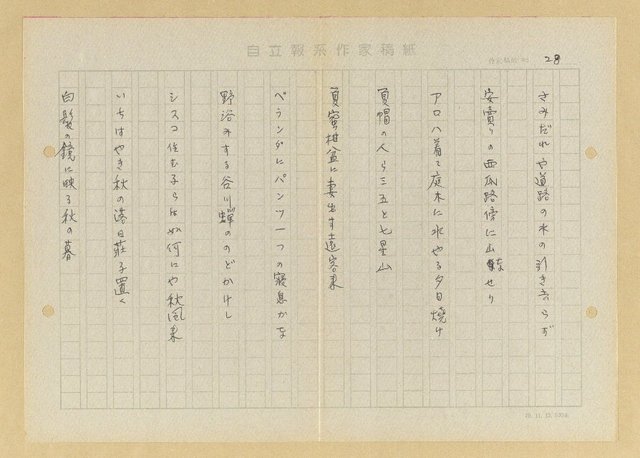 自立報系作家稿紙
28
さみだれや道路の水の引き去らず
安賣りの西瓜路傍に山なせり
アロハ着て庭木に水やる夕日焼け
夏帽の人ら三五と七星山
夏蜜柑盆に妻出す遠客来
ベランダにパンツ一つの寝息かな
野浴みする谷川蝉ののどかけし
シスコ住む子らは如何にや秋風来
いちはやき秋の落日莊子置く
白髪の鏡に映る秋の暮